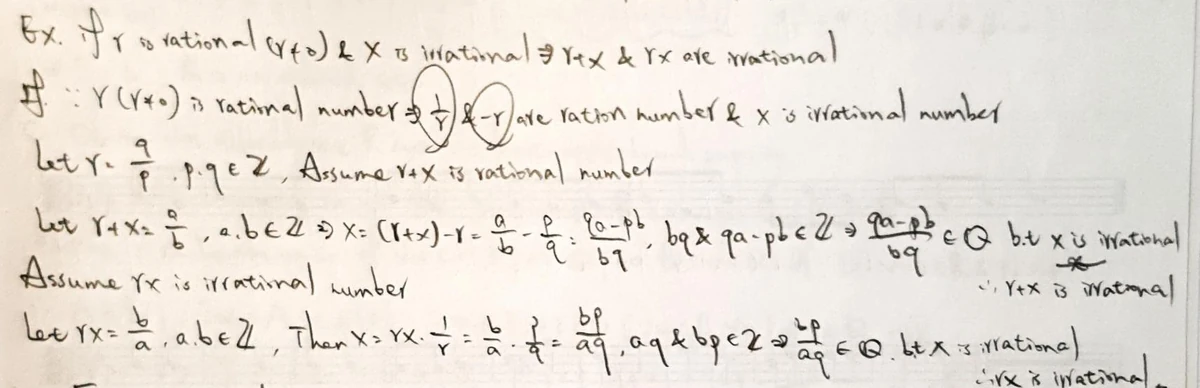 Ex. if r is rational (r≠0) & x is irrational ⇒ r+x & rx are irrational
pf. ∵ r (r≠0) is rational number ⇒ 1/r & -r are ration number & x is irrational number
Let r = q/p, p.q ∈ ℤ, Assume r+x is rational number
Let r+x = a/b, a.b ∈ ℤ ⇒ x = (r+x)-r = a/b - p/q = (qa-pb)/bq, bq & qa-pb ∈ ℤ ⇒ (qa-pb)/bq ∈ ℚ b.t x is irrational
∴ r+x is irrational
Assume rx is irrational number
Let rx = b/a, a.b ∈ ℤ, Then x = rx · 1/r = b/a · p/q = bp/aq, aq & bp ∈ ℤ ⇒ bp/aq ∈ ℚ. b.t x is irrational
∴ rx is irrational.